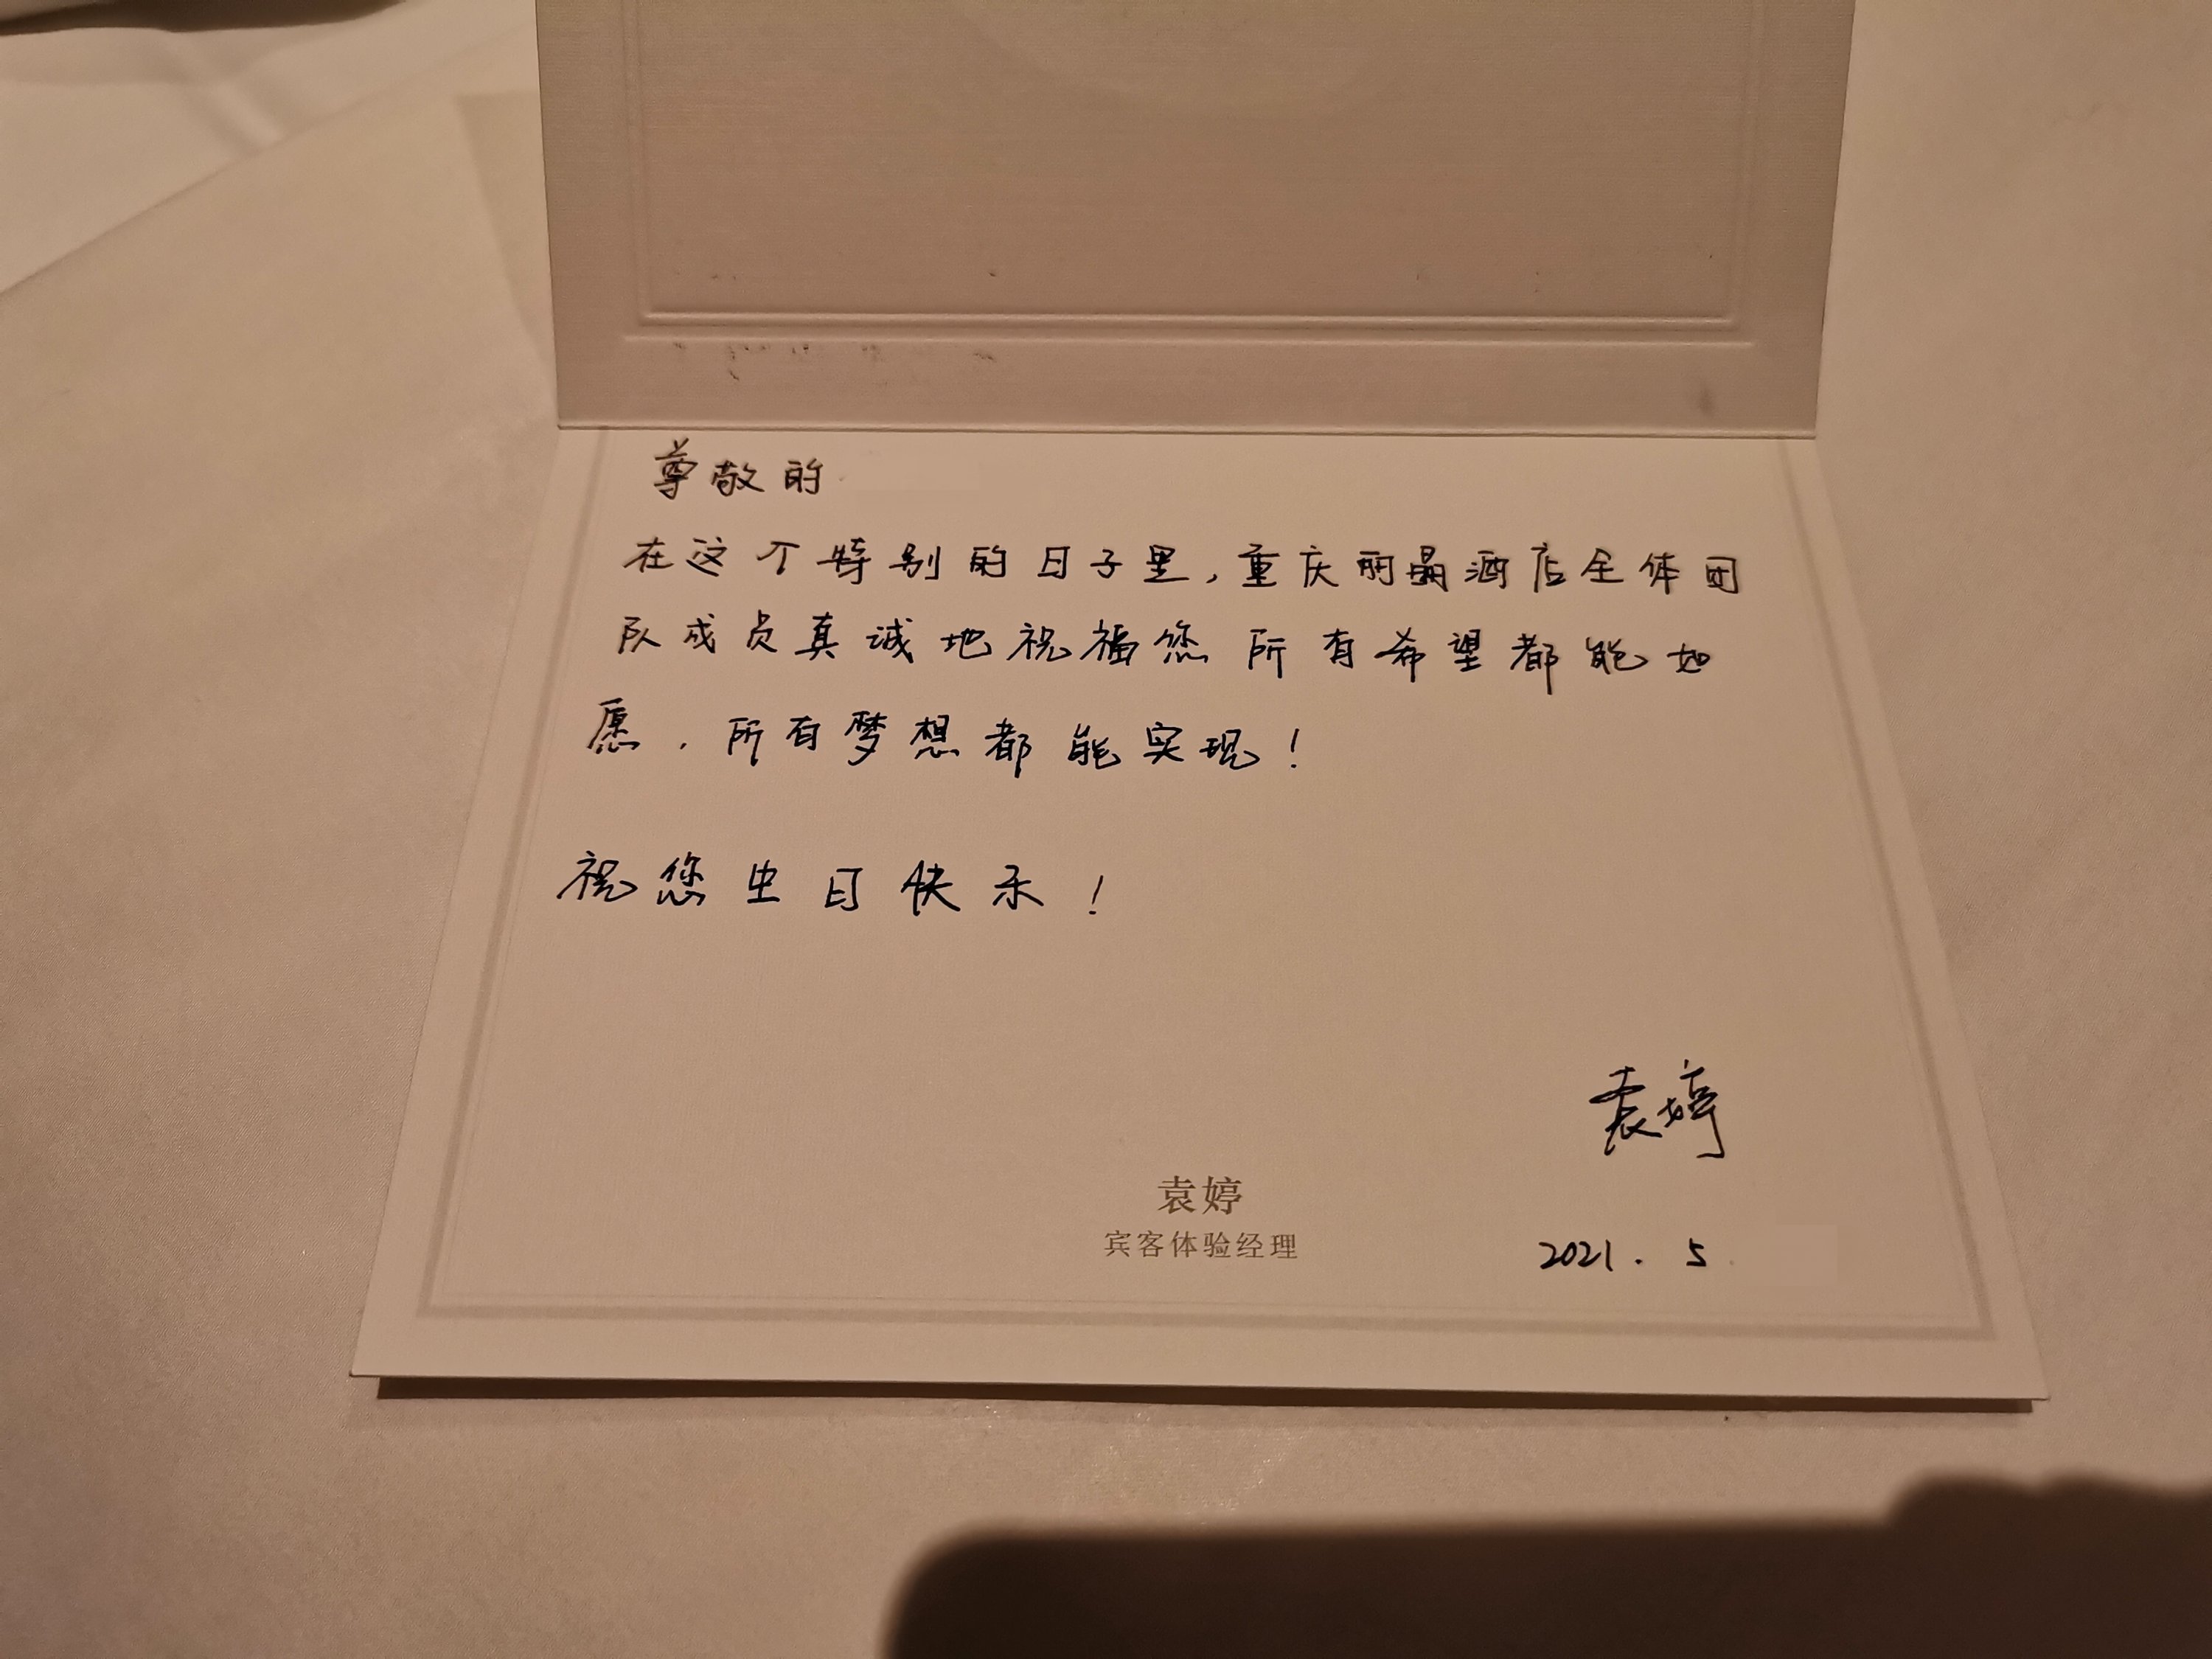 尊敬的
在这个特别的日子里，重庆丽晶酒店全体团
队成员真诚地祝福您所有希望都能如
愿，所有梦想都能实现！
祝您生日快乐！
袁婷
袁婷
宾客体验经理
2021.5.